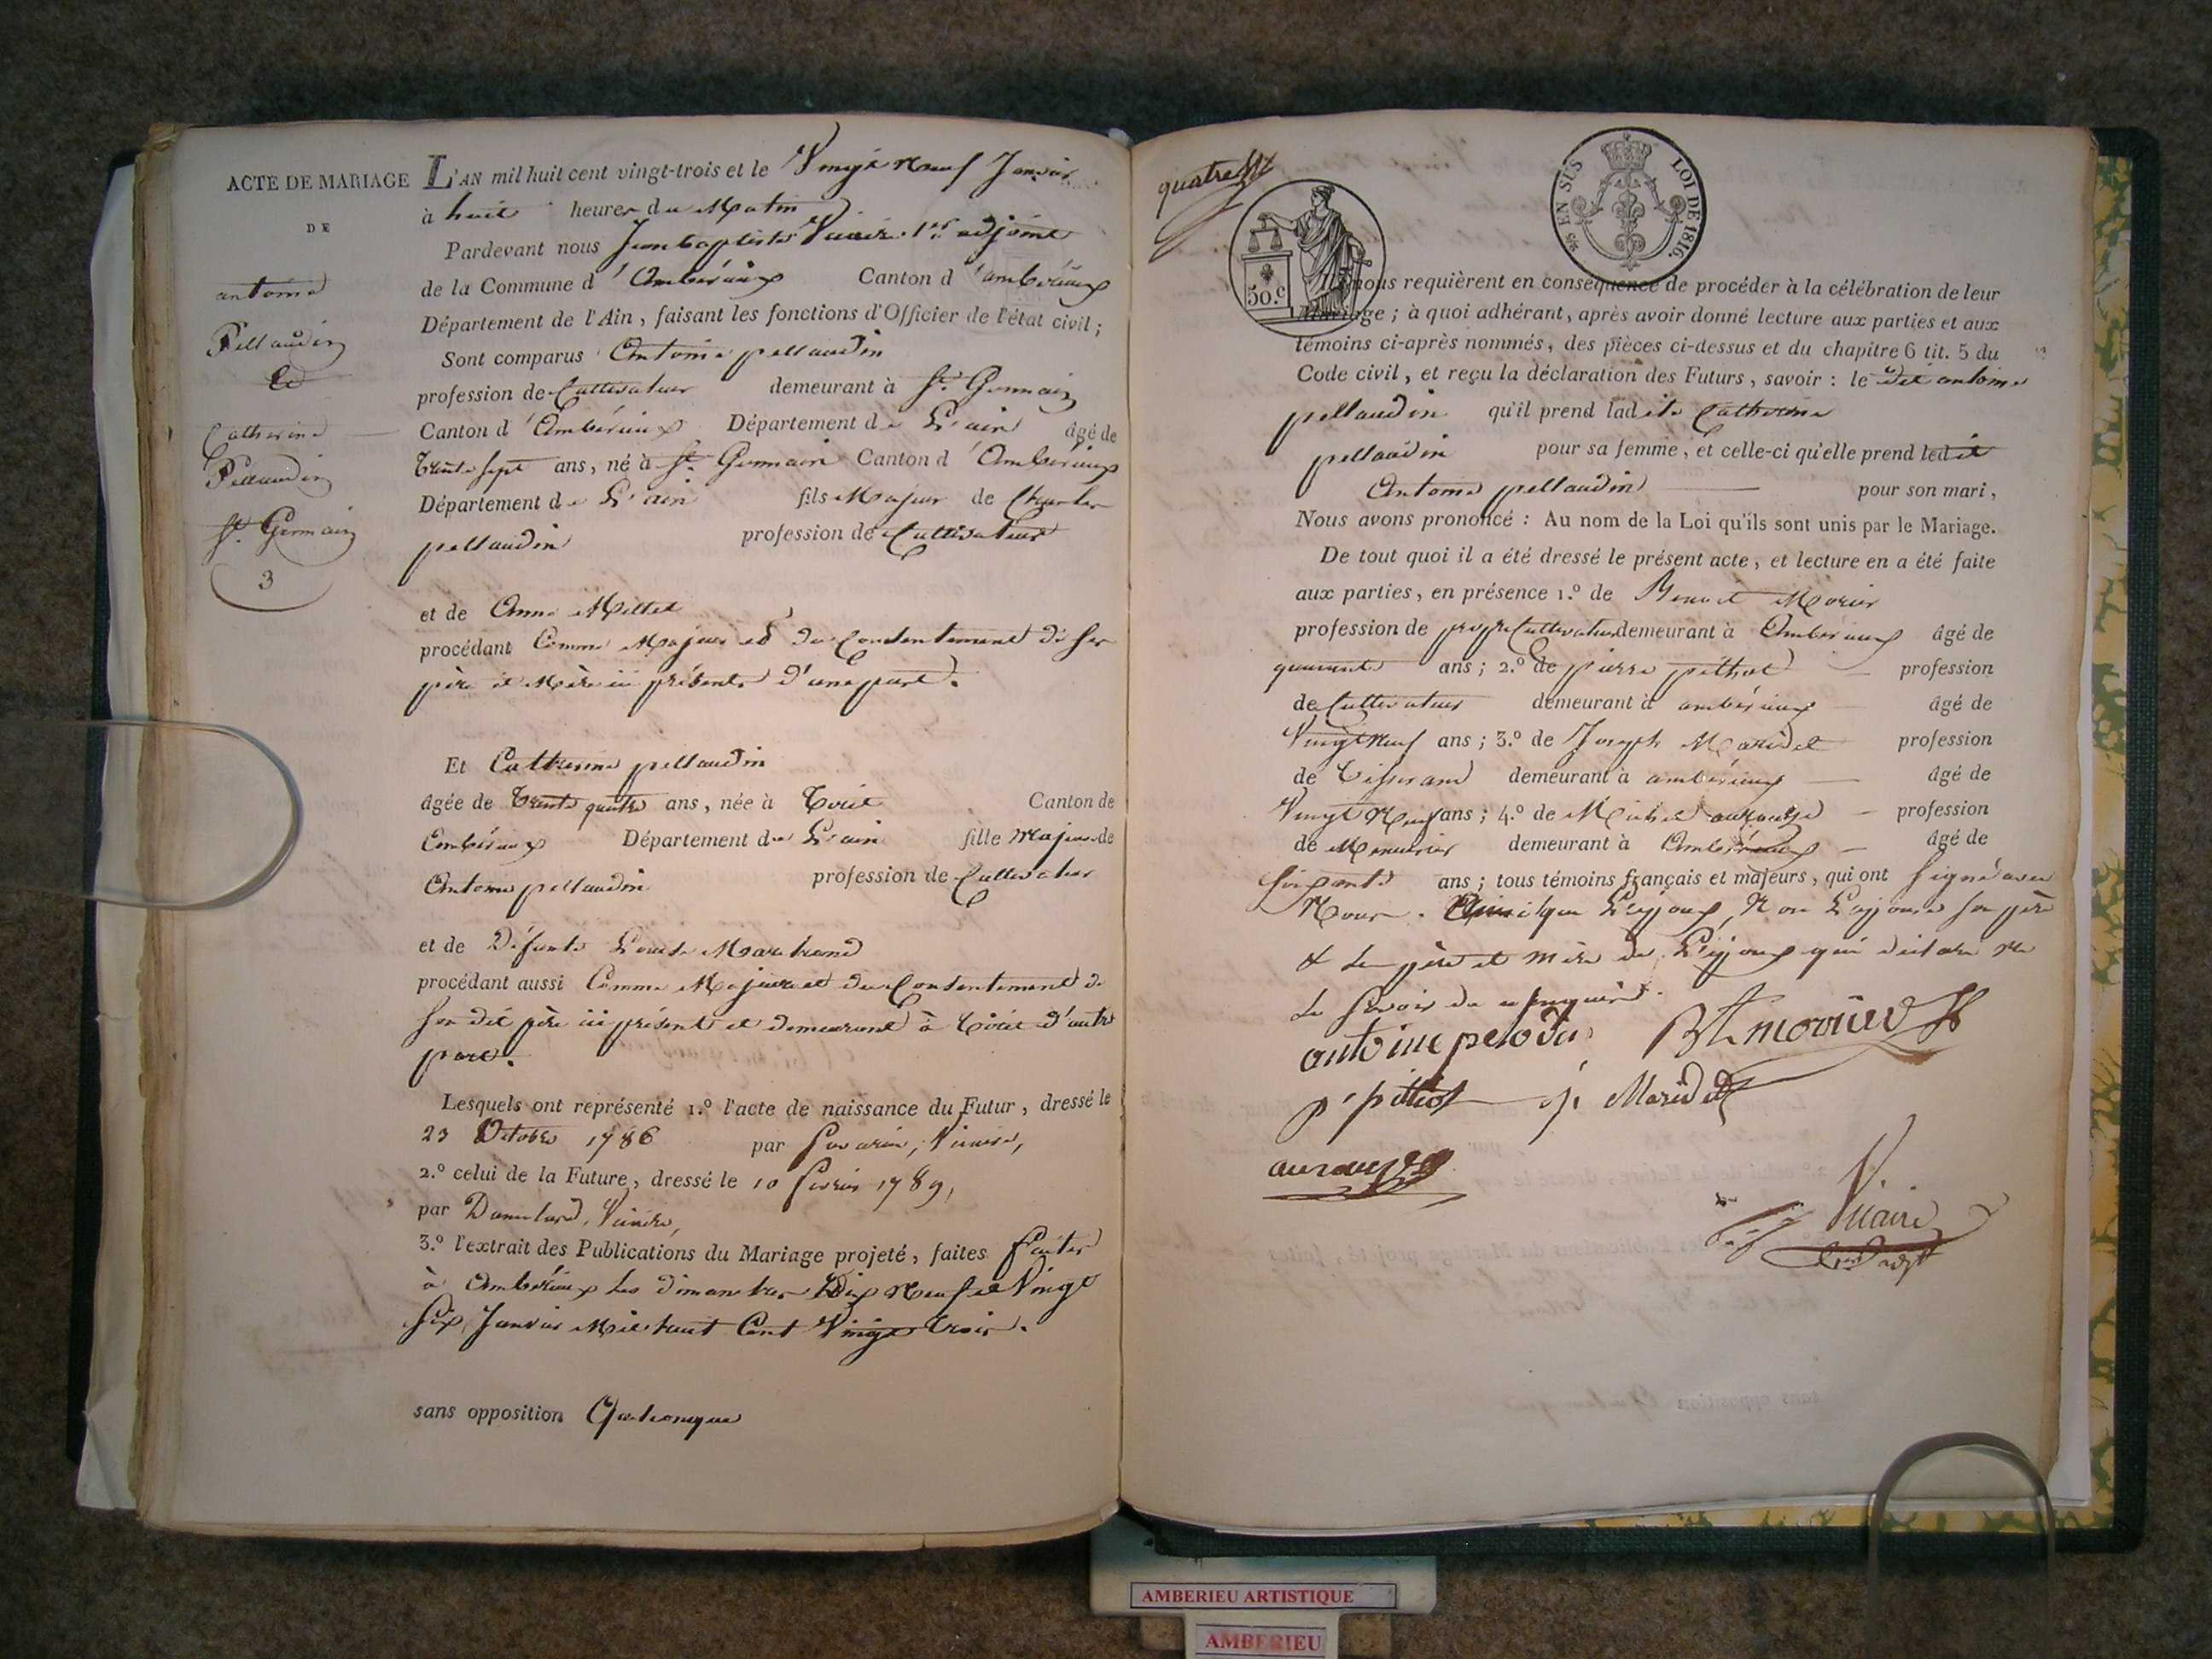 ACTE DE MARIAGE
DE
antoine
Pellaudin
et
Catherine
Pellaudin
St. Germain
3
L'AN mil huit cent vingt-trois et le Vingt Neuf Janvier
à huit heures du Matin
Pardevant nous Jean baptiste Vicaire 1er adjoint
de la Commune d'Ambérieux Canton d'ambérieux
Département de l'Ain, faisant les fonctions d'Officier de l'état civil;
Sont comparus Antoine pellaudin
profession de Cultivateur demeurant à St. Germain
Canton d'Ambérieux Département de L'ain âgé de
trente sept ans, né à St. Germain Canton d'Ambérieux
Département de L'ain fils Majeur de Charles
pellaudin profession de Cultivateur
et de Anne Millet
procédant Comme Majeur et du Consentement de ses
père et Mère ici présents d'une part.
Et Catherine pellaudin
âgée de trente quatre ans, née à Toriet Canton de
Ambérieux Département de L'ain fille Majeure de
Antoine pellaudin profession de Cultivateur
et de Défunte Louise
procédant aussi Comme Majeure et du Consentement de
son dit père ici présent et demeurant à Toriet d'autre
part.
Lesquels ont représenté 1.º l'acte de naissance du Futur, dressé le
23 Octobre 1786 par Savarin, Vicaire,
2.º celui de la Future, dressé le 10 fevrier 1789,
par Vicaire,
3.º l'extrait des Publications du Mariage projeté, faites faites
à Ambérieux les dimanches Dix Neuf et Vingt
Six Janvier Mil huit Cent Vingt trois.
sans opposition Quelconque
quatre
50.c
EN SUS
LOI DE 1816.
nous requièrent en conséquence de procéder à la célébration de leur
Mariage; à quoi adhérant, après avoir donné lecture aux parties et aux
témoins ci-après nommés, des pièces ci-dessus et du chapitre 6 tit. 5 du
Code civil, et reçu la déclaration des Futurs, savoir: le dit antoine
pellaudin qu'il prend ladite Catherine
pellaudin pour sa femme, et celle-ci qu'elle prend ledit
Antoine pellaudin pour son mari,
Nous avons prononcé: Au nom de la Loi qu'ils sont unis par le Mariage.
De tout quoi il a été dressé le présent acte, et lecture en a été faite
aux parties, en présence 1.º de Benoit Morier
profession de propre Cultivateur demeurant à Ambérieux âgé de
quarante ans; 2.º de pierre pithiot profession
de Cultivateur demeurant à ambérieux âgé de
Vingt Neuf ans; 3.º de Joseph Maridet profession
de Tisserand demeurant à ambérieux âgé de
Vingt Neuf ans; 4.º de Michel profession
de Menuisier demeurant à Ambérieux âgé de
soixante ans; tous témoins français et majeurs, qui ont signé avec
Nous. Ainsi que L'époux, Non L'épouse son père
& le père et mère de L'époux qui déclare ne
le savoir de ce enquis.
antoine pelodin Bt morier
p. pithiot j. Maridet
Vicaire
AMBERIEU ARTISTIQUE
AMBERIEU